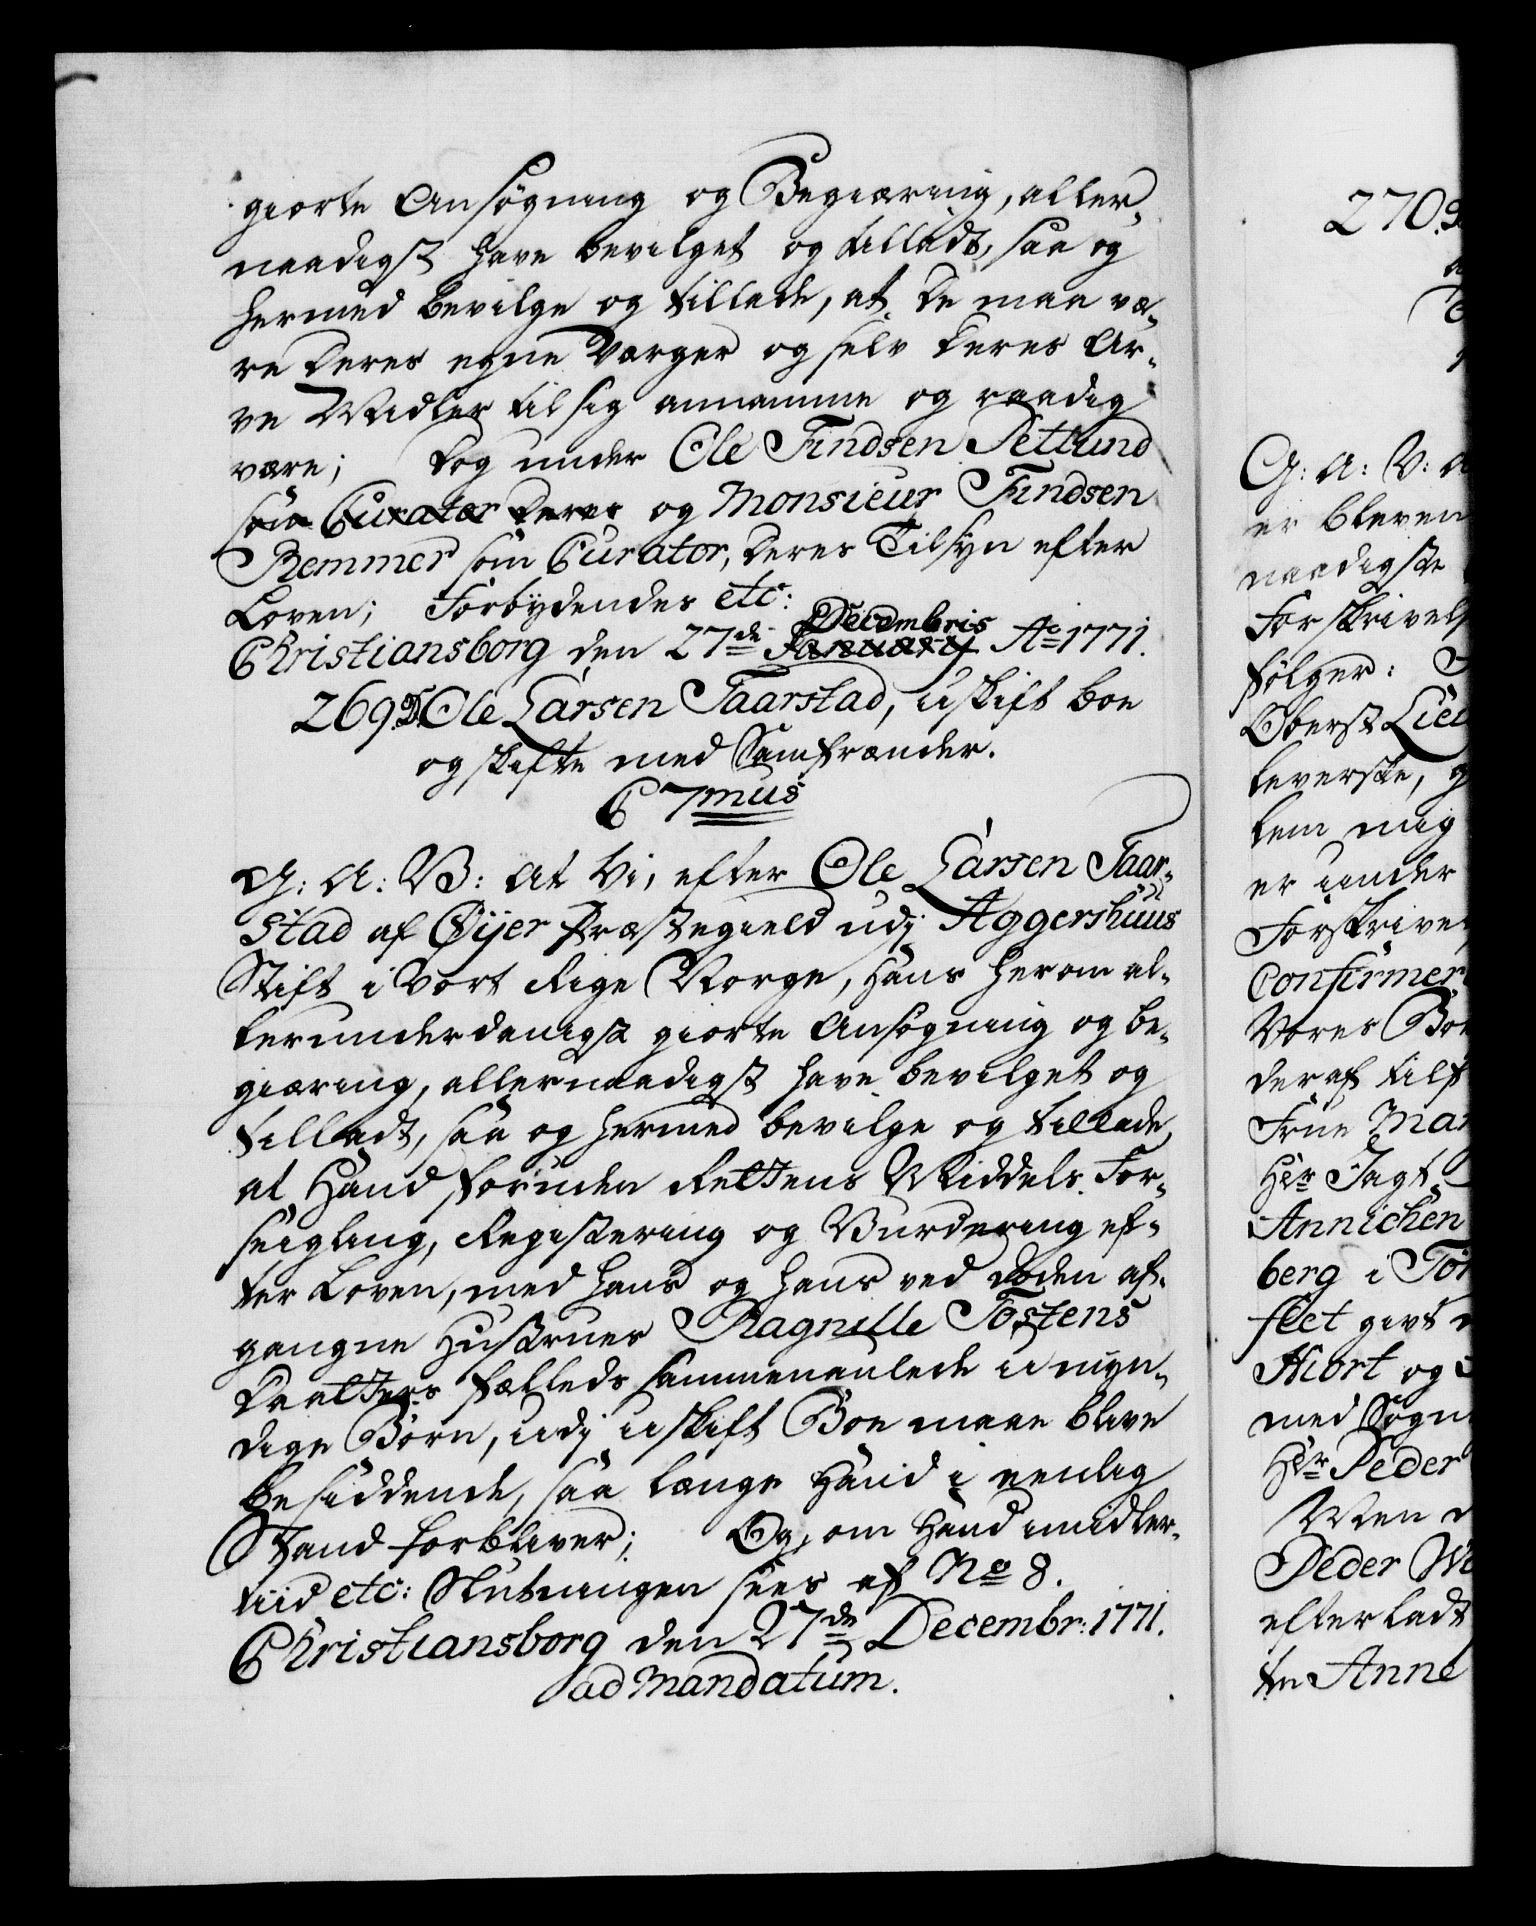 giorte Ansøgning og Begiæring, aller¬
naadigst have bevilget og tilladt, saa og
hermed bevilge og tillade, at De maa væ¬
re deres egne Værger og selv deres Ar¬
ve Midler til sig annamme og raadig
være; dog under Ole Findsen Setlund
som Curator deres og Monsieur Findsen
Remmer som Curator, deres Tilsyn efter
Loven; Forbydendes etc:
Christiansborg den 27de January Decembris Ao 1771.
269. Ole Larsen Taarstad, uskift boe
og skifte med Samfrænder.
C 7mus
G: A: V: At Vi, efter Ole Larsen Taar¬
stad af Øijer Præstegield udj Aggershuus
Stift i Vort Rige Norge, Hans herom al¬
lerunderdanigst giorte Ansøgning og be¬
giæring, allernaadigst have bevilget og
tilladt, saa og hermed bevilge og tillade,
at Hand foruden Rettens Middels For¬
seigling, Registering og Vurdering ef¬
ter Loven, med hans og hans ved døden af¬
gangne Hustrues Ragnille Tostens
daatters fælleds sammenavlede umyn¬
dige Børn, udj uskift Boe maae blive
besiddende, saa længe Hand i eenlig
Stand forbliver; Og, om Hand imidler¬
tiid etc: Slutningen sees af No 8.
Christiansborg den 27de Decembr: 1771.
ad Mandatum.
270.
G: A: V:
er bleven
naadigste
Forskrivels
følger:
Oberst Lieu
leverste, g
lem mig
er under
Forskriven
Confirmer
Vores Boe
deraf tilf
Frue Mar
Hr Jagt
Annichen
berg i Tøn
fleet givt
Hiort og
med Sogne
Hr Peder
Men
Peder We
efterladt
ten Anne